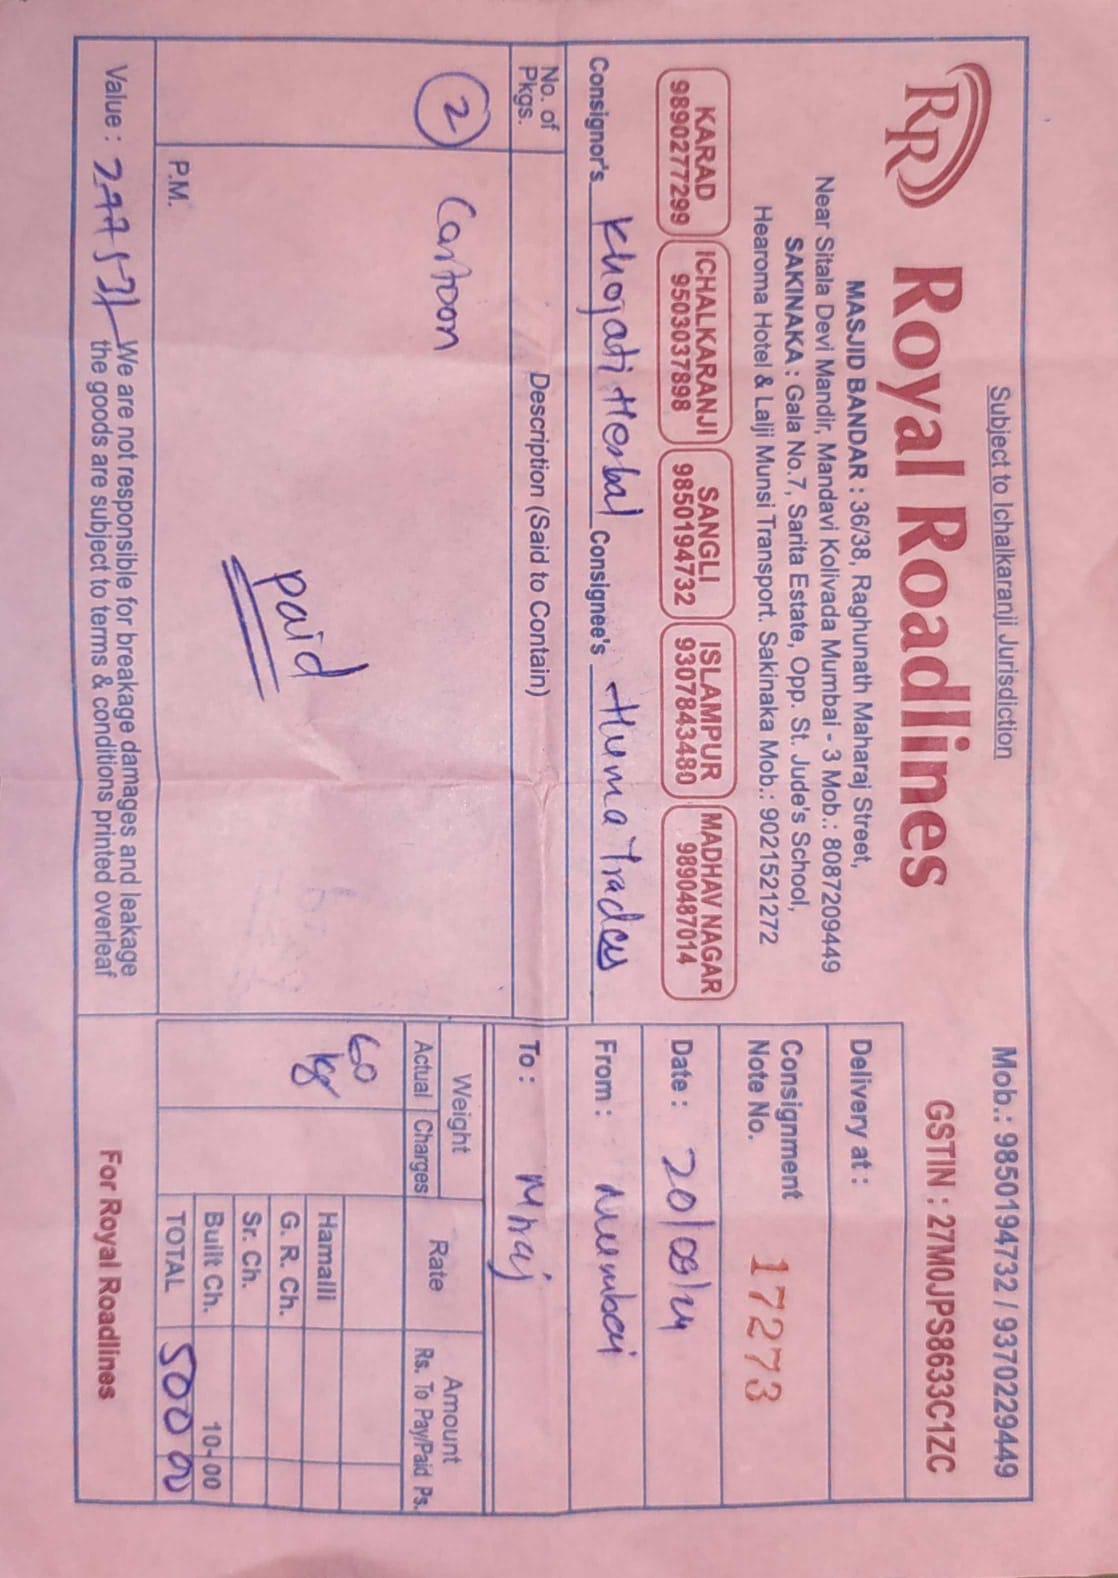 Subject to Ichalkaranji Jurisdiction
Mob.: 9850194732 / 9370229449
RR Royal Roadlines
GSTIN : 27M0JPS8633C1ZC
MASJID BANDAR : 36/38, Raghunath Maharaj Street,
Near Sitala Devi Mandir, Mandavi Kolivada Mumbai - 3 Mob.: 8087209449
SAKINAKA : Gala No.7, Sarita Estate, Opp. St. Jude's School,
Hearoma Hotel & Lalji Munsi Transport. Sakinaka Mob.: 9021521272
Delivery at :
Consignment
Note No. 17273
KARAD
9890277299
ICHALKARANJI
9503037898
SANGLI
9850194732
ISLAMPUR
9307843480
MADHAV NAGAR
9890487014
Date : 20/08/24
Consignor's Khojati Herbal Consignee's Huma Traders
From : Mumbai
To : Mraj
No. of
Pkgs.
Description (Said to Contain)
Weight
Actual Charges
Rate
Amount
Rs. To Pay/Paid Ps.
2 Cartoon
60
kg
paid
Hamalli
G. R. Ch.
Sr. Ch.
Built Ch. 10-00
TOTAL 500 00
P.M.
Value :
We are not responsible for breakage damages and leakage
the goods are subject to terms & conditions printed overleaf
For Royal Roadlines